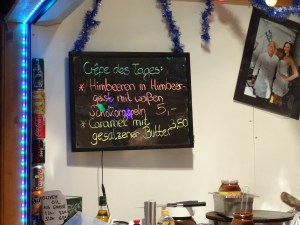 Crêpe des Tages:
* Himbeeren in Himbeer-
geist mit weißen
Schokoraspeln 5,-
* Caramel mit 3,50
gesalzener Butter